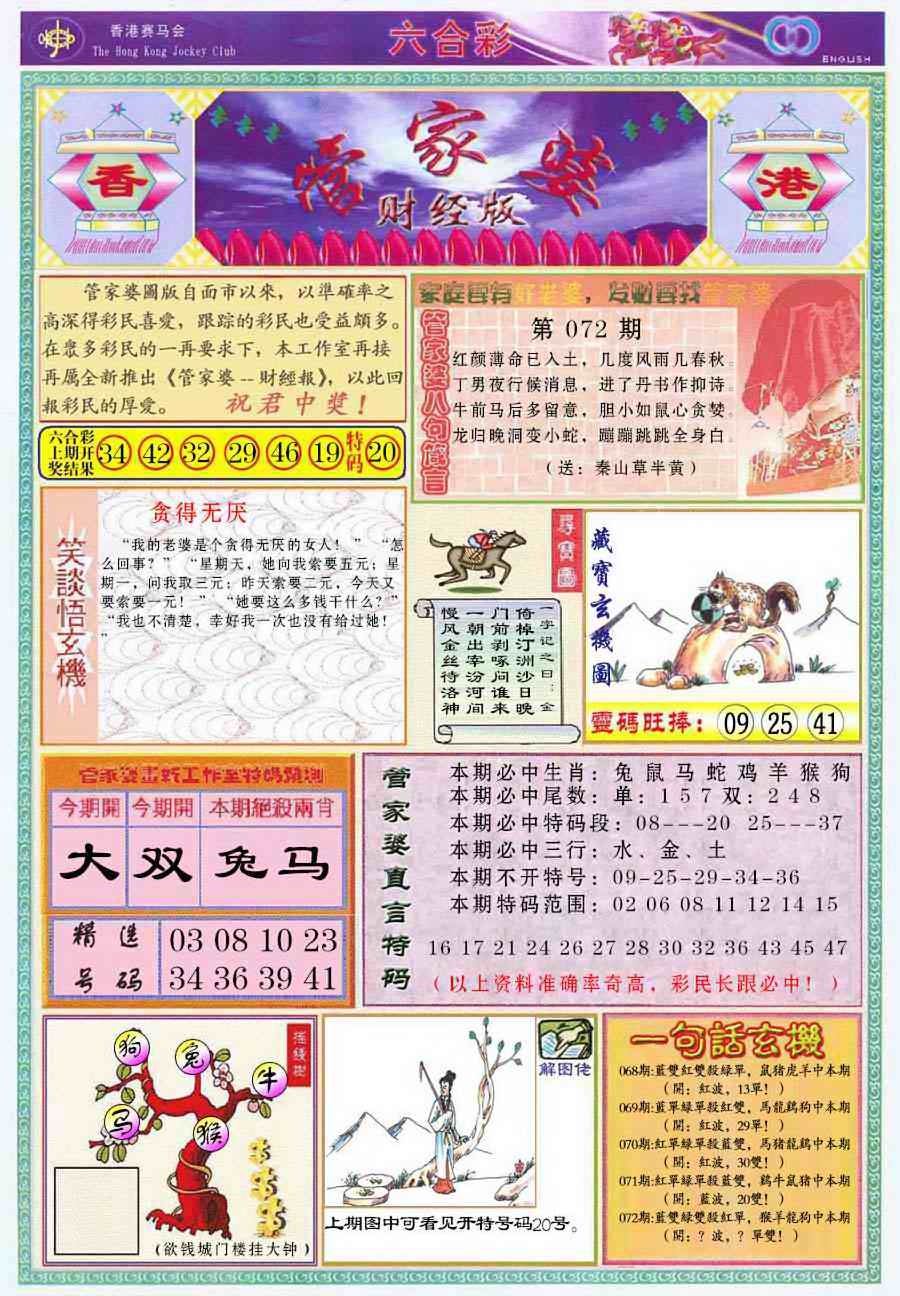 香港赛马会
The Hong Kong Jockey Club
六合彩
ENGLISH
香
管家婆
财经版
港
管家婆圖版自面市以來，以準確率之
高深得彩民喜愛，跟踪的彩民也受益頗多。
在眾多彩民的一再要求下，本工作室再接
再属全新推出《管家婆--財經報》，以此回
報彩民的厚爱。 祝君中獎！
六合彩
上期开
奖结果
34 42 32 29 46 19 特码 20
家庭要有好老婆，发财要找管家婆
管家婆八句箴言
第 072 期
红颜薄命已入土，几度风雨几春秋。
丁男夜行候消息，进了丹书作抑诗。
牛前马后多留意，胆小如鼠心贪婪。
龙归晚洞变小蛇，蹦蹦跳跳全身白。
（送：秦山草半黄）
笑談悟玄機
贪得无厌
“我的老婆是个贪得无厌的女人！”“怎
么回事？”“星期天，她向我索要五元；星
期一，问我取三元；昨天索要二元，今天又
要索要一元！”“她要这么多钱干什么？”
“我也不清楚，幸好我一次也没有给过她！
”
尋寶圖
一字记之曰：金
倚棹汀洲沙日晚
门前剥啄问谁来
一朝出宰汾河间
慢风金丝待洛神
藏寶玄機圖
靈碼旺捧：09 25 41
管家婆最新工作室特码预测
今期開 今期開 本期絕殺兩肖
大 双 兔马
精选
号码
03 08 10 23
34 36 39 41
管家婆直言特码
本期必中生肖：兔鼠马蛇鸡羊猴狗
本期必中尾数：单：157双：248
本期必中特码段：08---20 25---37
本期必中三行：水、金、土
本期不开特号：09-25-29-34-36
本期特码范围：02 06 08 11 12 14 15
16 17 21 24 26 27 28 30 32 36 43 45 47
（以上资料准确率奇高，彩民长跟必中！）
摇錢樹
狗
兔
牛
马
猴
（欲钱城门楼挂大钟）
解图佬
上期图中可看见开特号码20号。
一句話玄機
068期:藍雙紅雙殺綠單，鼠猪虎羊中本期
（開：紅波，13單！）
069期:藍單綠單殺紅雙，馬龍鷄狗中本期
（開：紅波，29單！）
070期:紅單綠單殺藍雙，馬猪龍鷄中本期
（開：紅波，30雙！）
071期:紅單綠單殺藍雙，鷄牛鼠猪中本期
（開：藍波，20雙！）
072期:藍雙綠雙殺紅單，猴羊龍狗中本期
（開：？波，？單雙！）